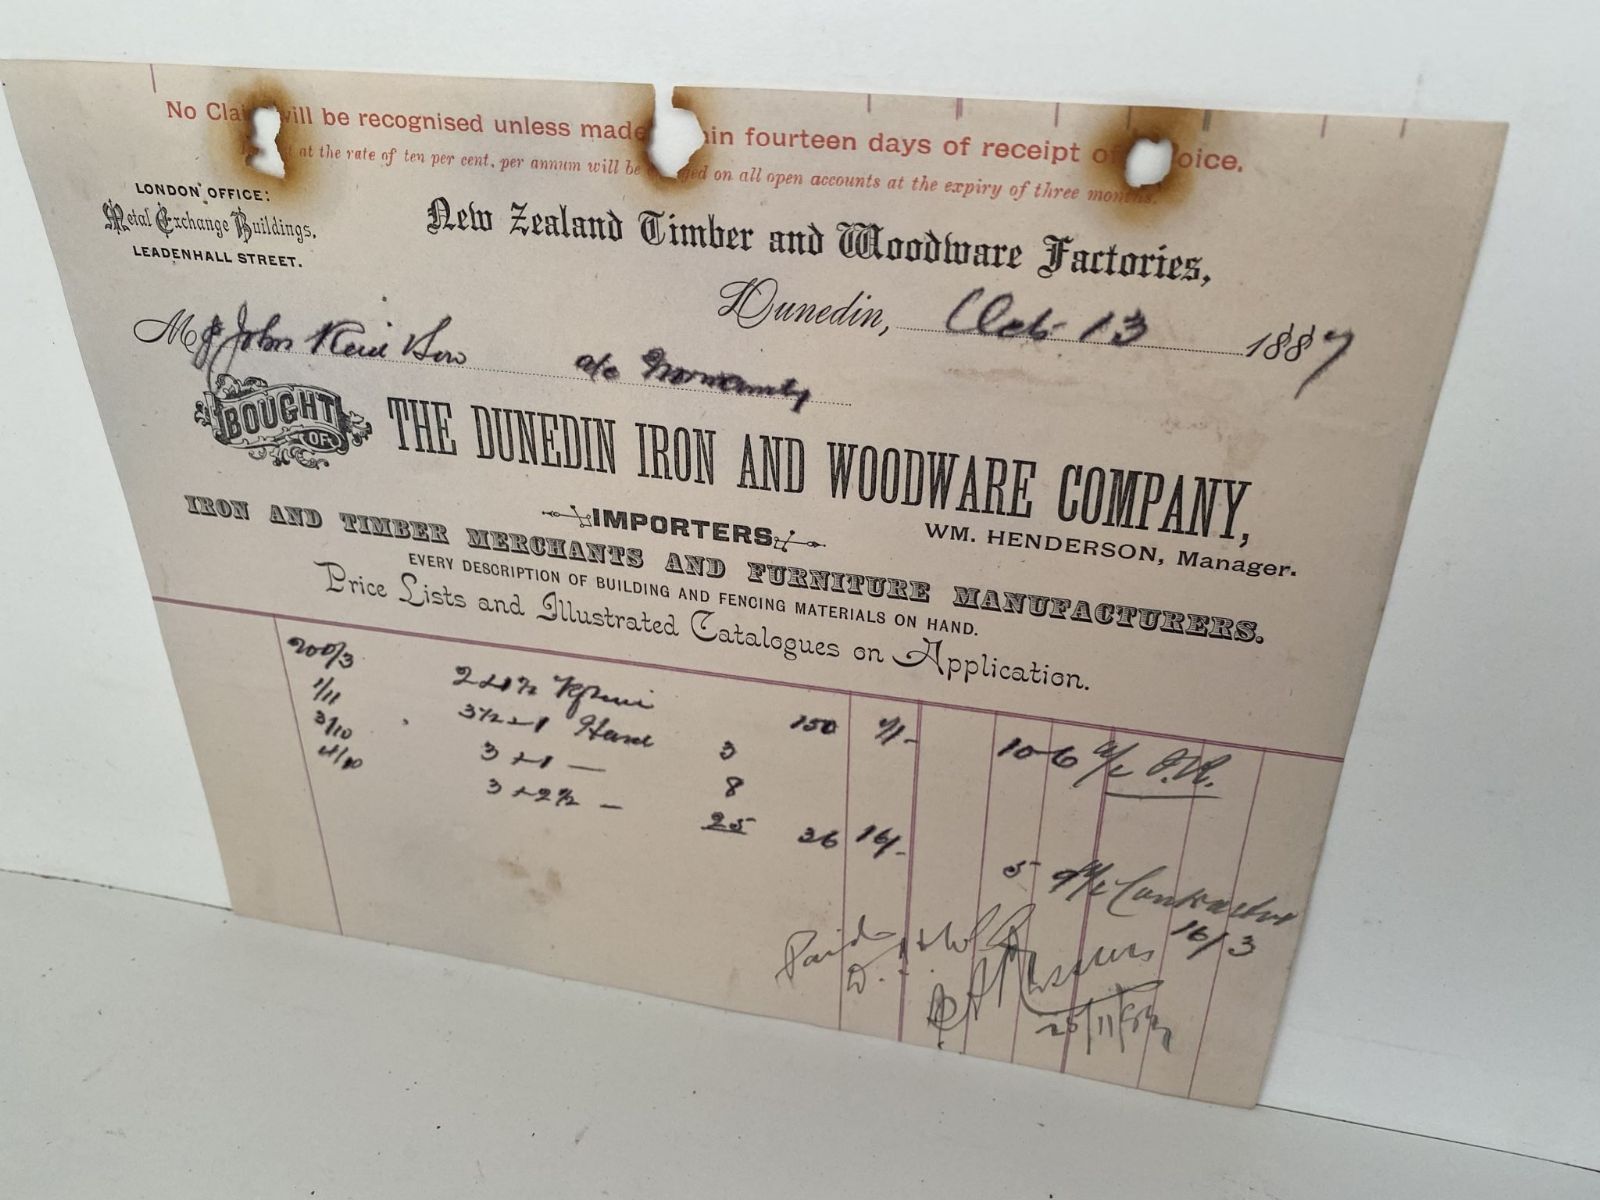 No Cla will be recognised unless made in fourteen days of receipt of oice.
at the rate of ten per cent. per annum will be ged on all open accounts at the expiry of three months.
LONDON OFFICE:
Metal Exchange Buildings,
LEADENHALL STREET.
New Zealand Timber and Woodware Factories,
Dunedin, Oct 13 1887
M John Reid
a/c
BOUGHT OF
THE DUNEDIN IRON AND WOODWARE COMPANY,
IMPORTERS
WM. HENDERSON, Manager.
IRON AND TIMBER MERCHANTS AND FURNITURE MANUFACTURERS.
EVERY DESCRIPTION OF BUILDING AND FENCING MATERIALS ON HAND.
Price Lists and Illustrated Catalogues on Application.
200/3 150 10 6 a/c J.R.
1/11 3
3/10 3 x 1 — 8
4/10 25 36 16/- 5
16/3
Paid